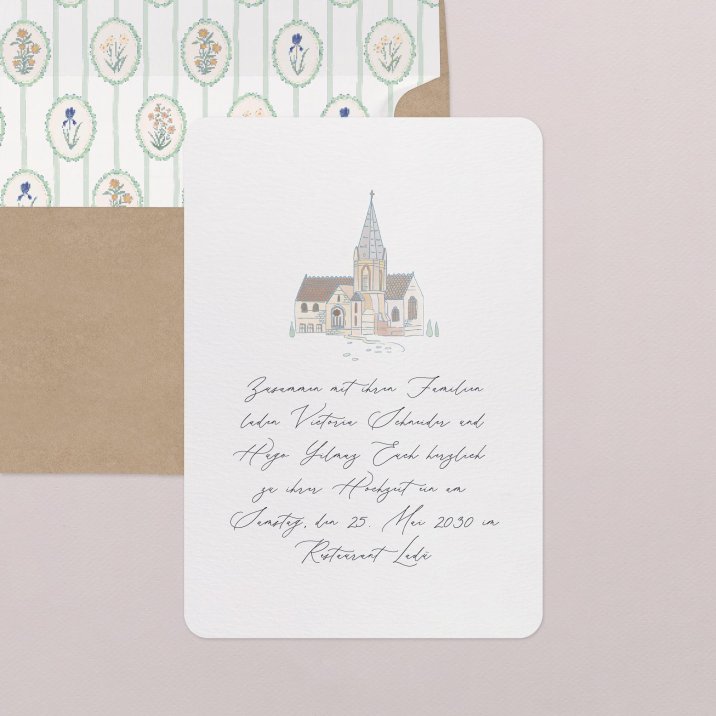 Zusammen mit ihren Familien
laden Victoria Schneider und
Hugo Yilmaz Euch herzlich
zu ihrer Hochzeit ein am
Samstag, den 25. Mai 2030 im
Restaurant Ladü